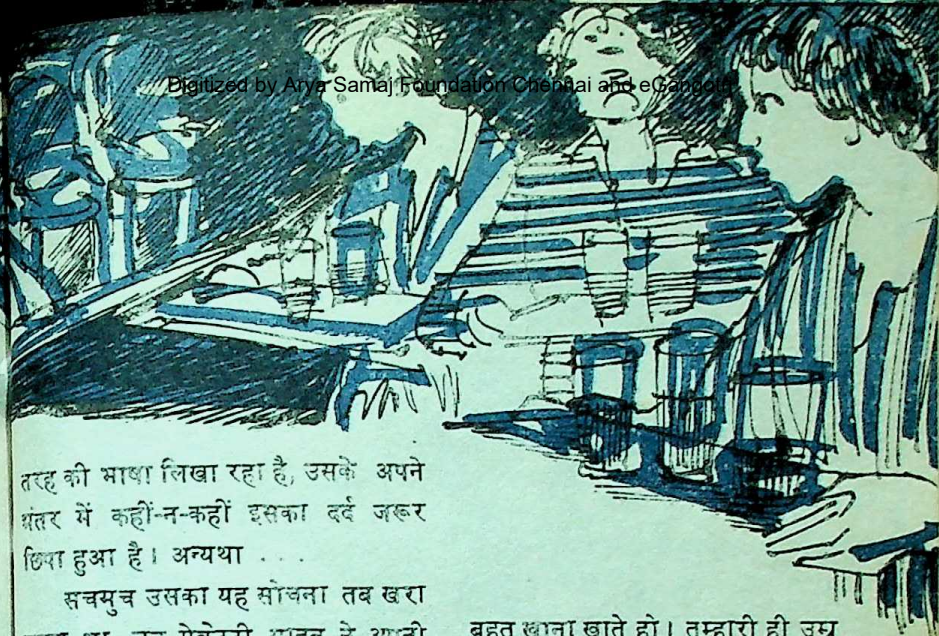 Digitized by Arya Samaj Foundation Chennai and eGangotri
तरह की भाषा लिखा रहा है, उसके अपने
अंतर में कहीं-न-कहीं इसका दर्द जरूर
छिपा हुआ है। अन्यथा . . .
सचमुच उसका यह सोचना तब खरा
बहुत खाना खाते हो। तुम्हारी ही उम्र